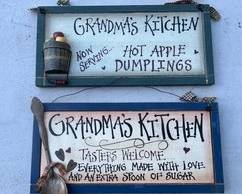 GRANDMA'S KITCHEN
NOW SERVING... HOT APPLE
DUMPLINGS
GRANDMA'S KITCHEN
TASTERS WELCOME
EVERYTHING MADE WITH LOVE
AND AN EXTRA SPOON OF SUGAR